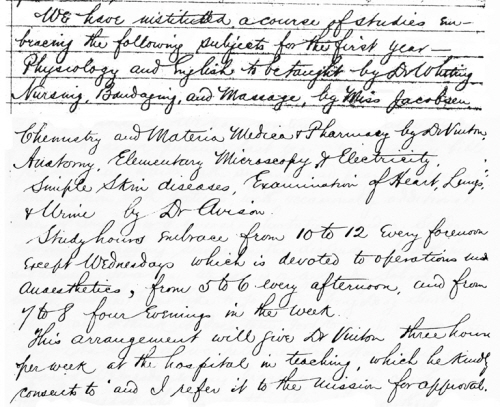 We have instituted a course of studies em-
bracing the following subjects for the first year -
Physiology and English to be taught by Dr Whiting
Nursing, Bandaging, and Massage, by Miss Jacobsen
Chemistry and Materia Medica & Pharmacy by Dr Vinton,
Anatomy, Elementary Microscopy, & Electricity,
Simple Skin diseases, Examination of Heart, Lungs,
& Urine by Dr Avison.
Study hours embrace from 10 to 12 every forenoon
except Wednesdays which is devoted to operations and
anaesthetics, from 5 to 6 every afternoon, and from
7 to 8 four evenings in the week.
This arrangement will give Dr Vinton three hours
per week at the hospital in teaching, which he kindly
consents to and I refer it to the mission for approval.